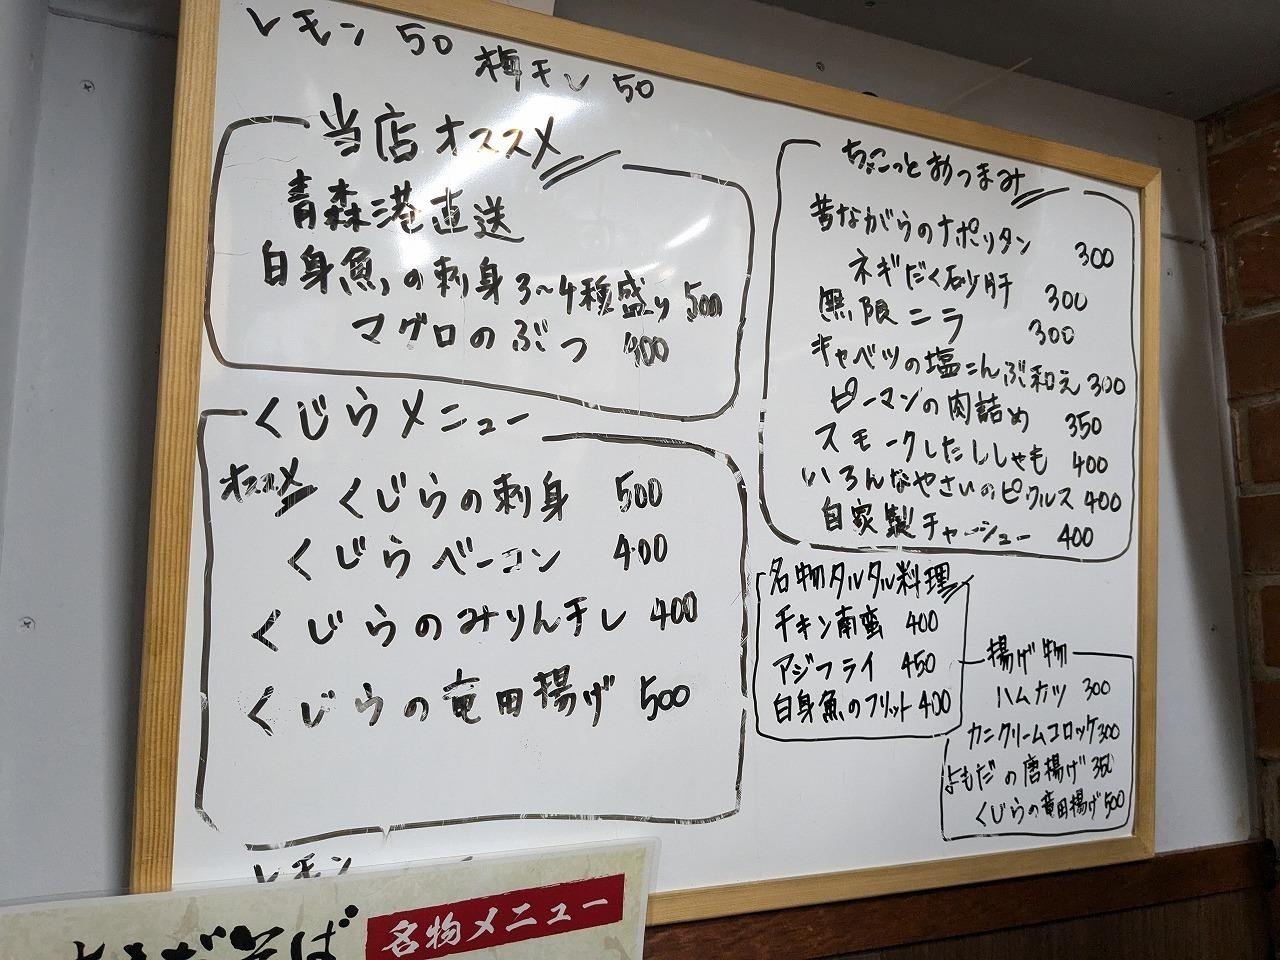 レモン 50
梅干し 50
当店オススメ
青森港直送
白身魚の刺身3～4種盛り 500
マグロのぶつ 400
くじらメニュー
オススメ くじらの刺身 500
くじらベーコン 400
くじらのみりん干し 400
くじらの竜田揚げ 500
レモン
ちょこっとおつまみ
昔ながらのナポリタン 300
ネギだく砂肝 300
無限ニラ 300
キャベツの塩こんぶ和え 300
ピーマンの肉詰め 350
スモークしたししゃも 400
いろんなやさいのピクルス 400
自家製チャーシュー 400
名物タルタル料理
チキン南蛮 400
アジフライ 450
白身魚のフリット 400
揚げ物
ハムカツ 300
カニクリームコロッケ 300
よもだの唐揚げ 350
くじらの竜田揚げ 500
よもだそば 名物メニュー